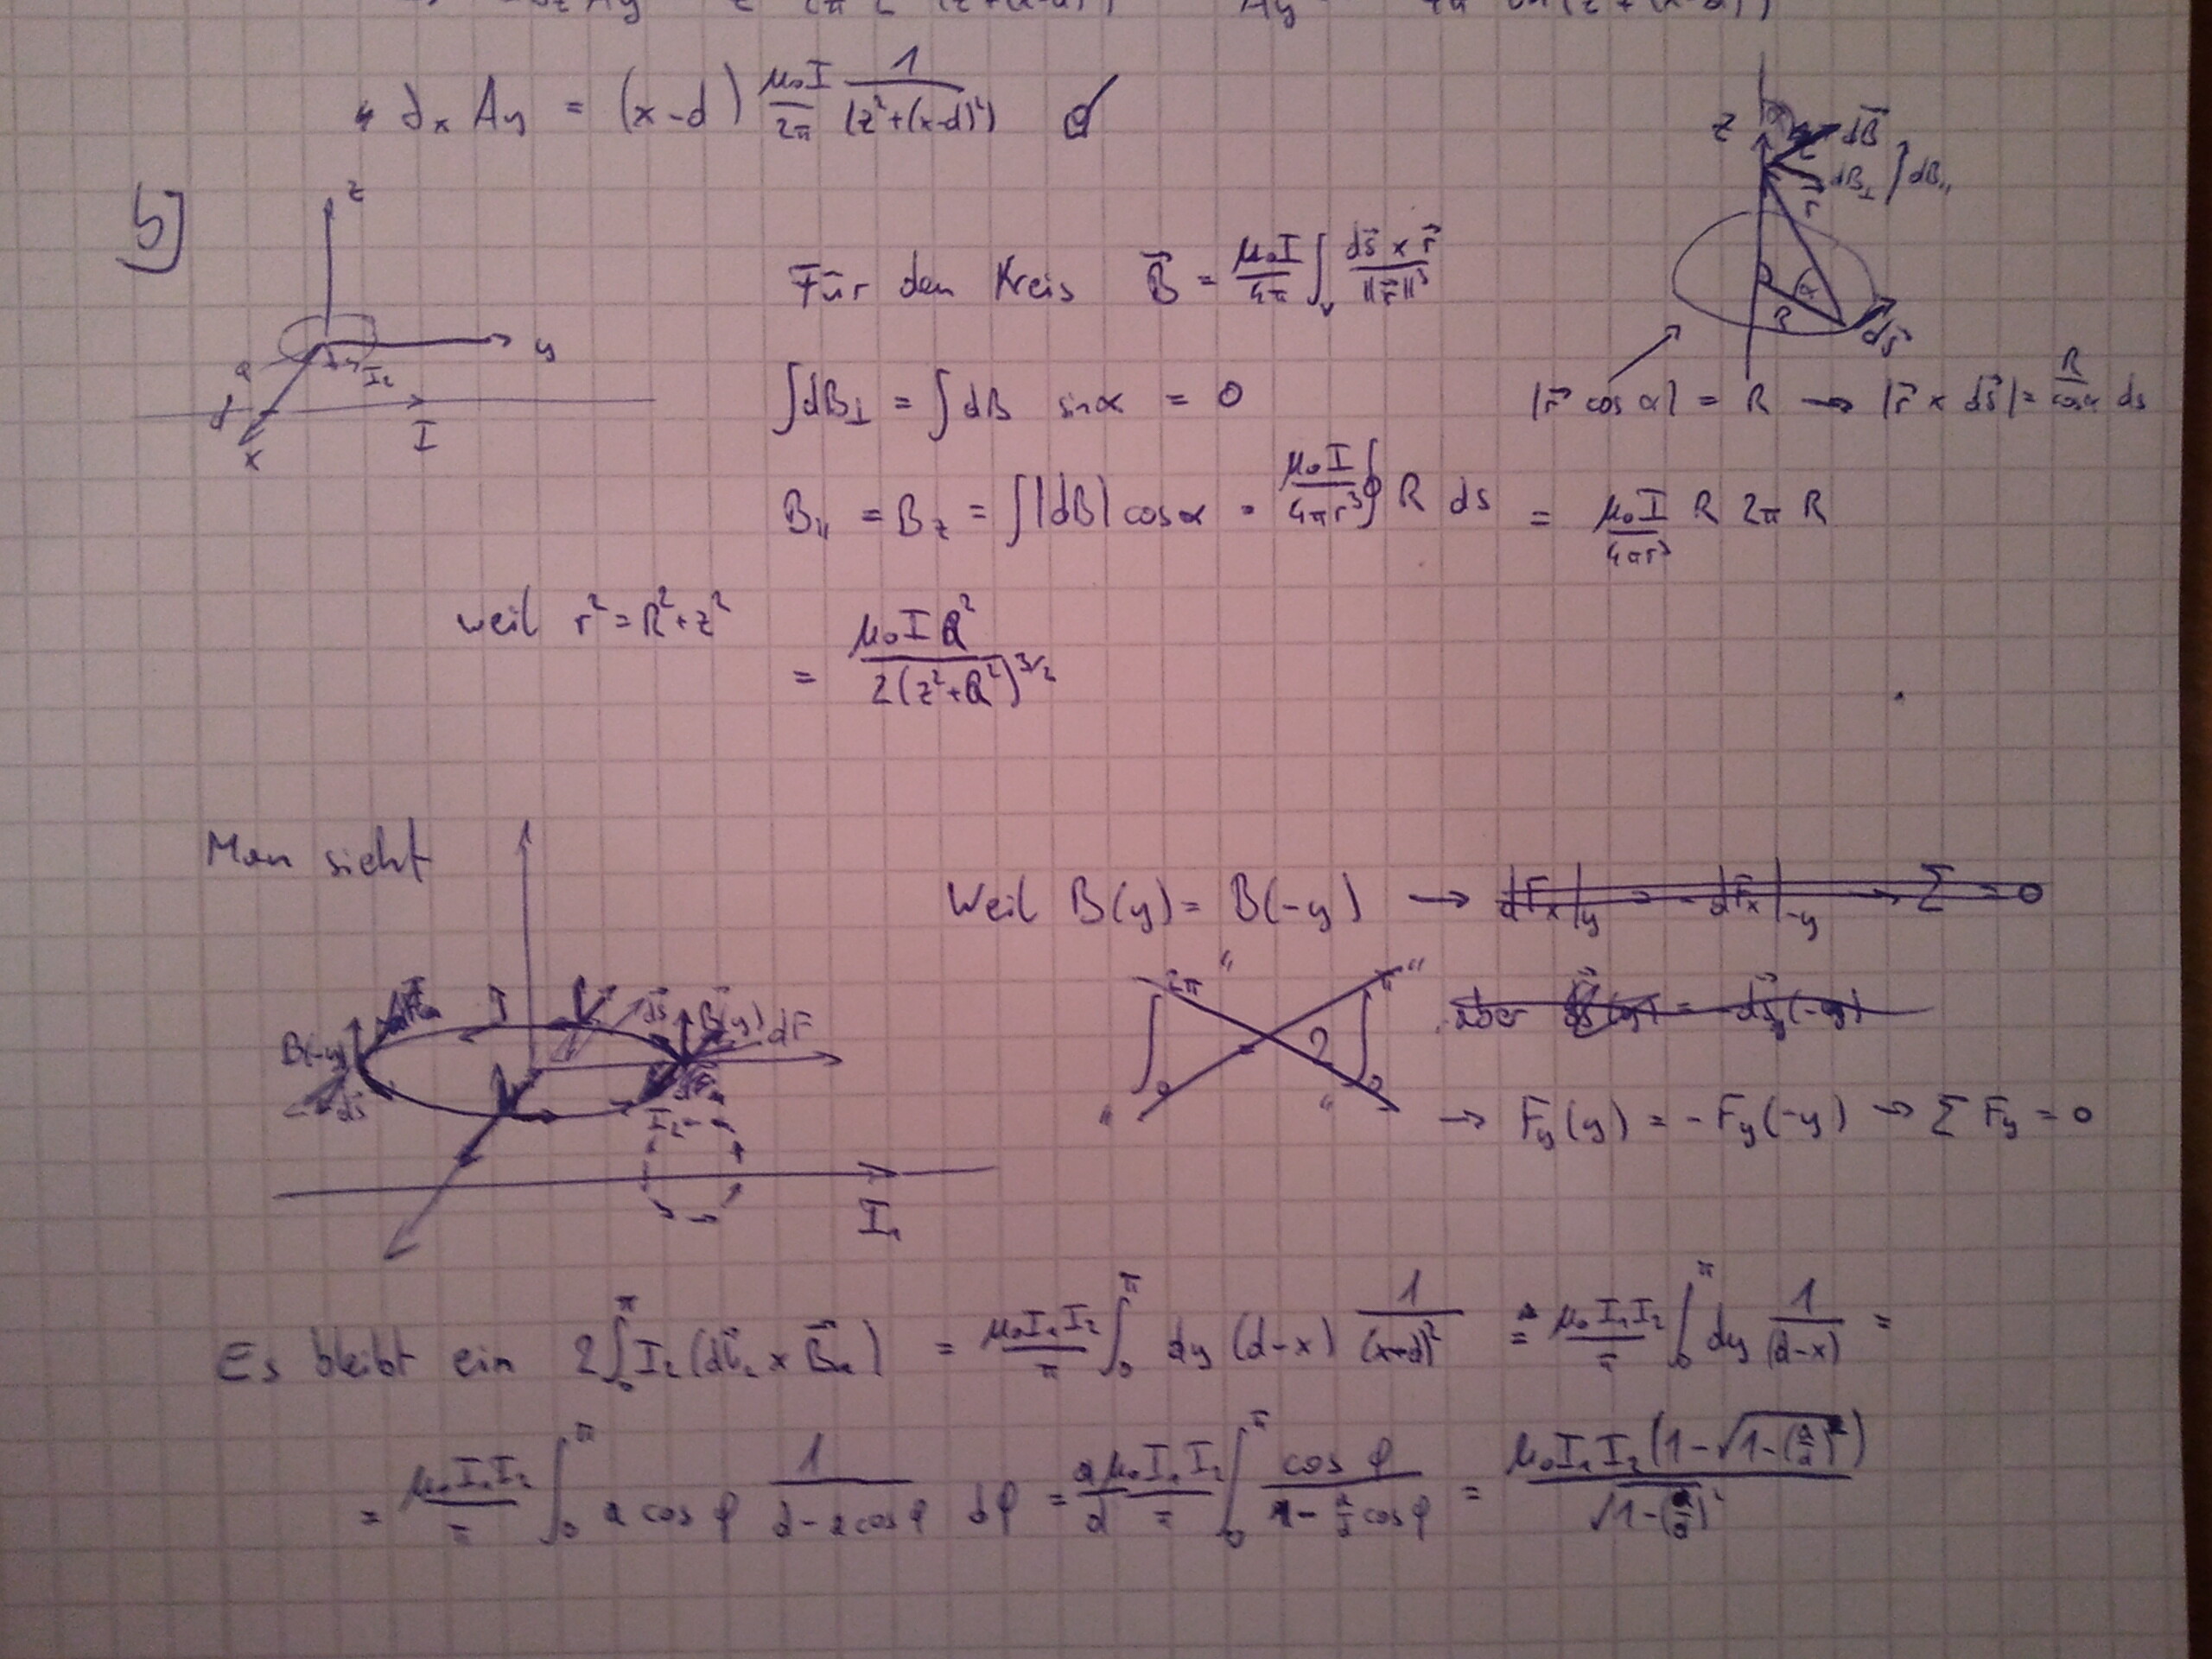 ∂x Ay = (x-d) μ₀I/2π 1/(z²+(x-d)²)
b)
z
y
a
I₂
d
I
x
Für den Kreis B⃗ = μ₀I/4π ∫ ds⃗ × r⃗ / ||r⃗||³
z
α
dB⃗
dB⊥
dB∥
r⃗
α
R
ds⃗
∫dB⊥ = ∫dB sinα = 0
|r⃗ cos α| = R → |r⃗ × ds⃗| = R/cosα ds
B∥ = Bz = ∫|dB| cosα = μ₀I/4πr³ ∮ R ds = μ₀I/4πr³ R 2π R
weil r² = R²+z²
= μ₀IR² / 2(z²+R²)^3/2
Man sieht
Weil B(y) = B(-y) → dFx|y = -dFx|-y → Σ = 0
B(-y)
ds⃗
ds⃗
B⃗(y)
dF
I₂
I₁
aber
→ Fy(y) = -Fy(-y) → Σ Fy = 0
Es bleibt ein 2∫₀^π I₂(dl⃗₂ × B⃗) = μ₀I₁I₂/π ∫₀^π dy (d-x) 1/(x+d)² = μ₀I₁I₂/π ∫₀^π dy 1/(d-x) =
= μ₀I₁I₂/π ∫₀^π a cos φ 1/(d-a cos φ) dφ = a/d μ₀I₁I₂/π ∫₀^π cos φ/(1-a/d cos φ) = μ₀I₁I₂(1-√(1-(a/d)²)) / √(1-(a/d)²)